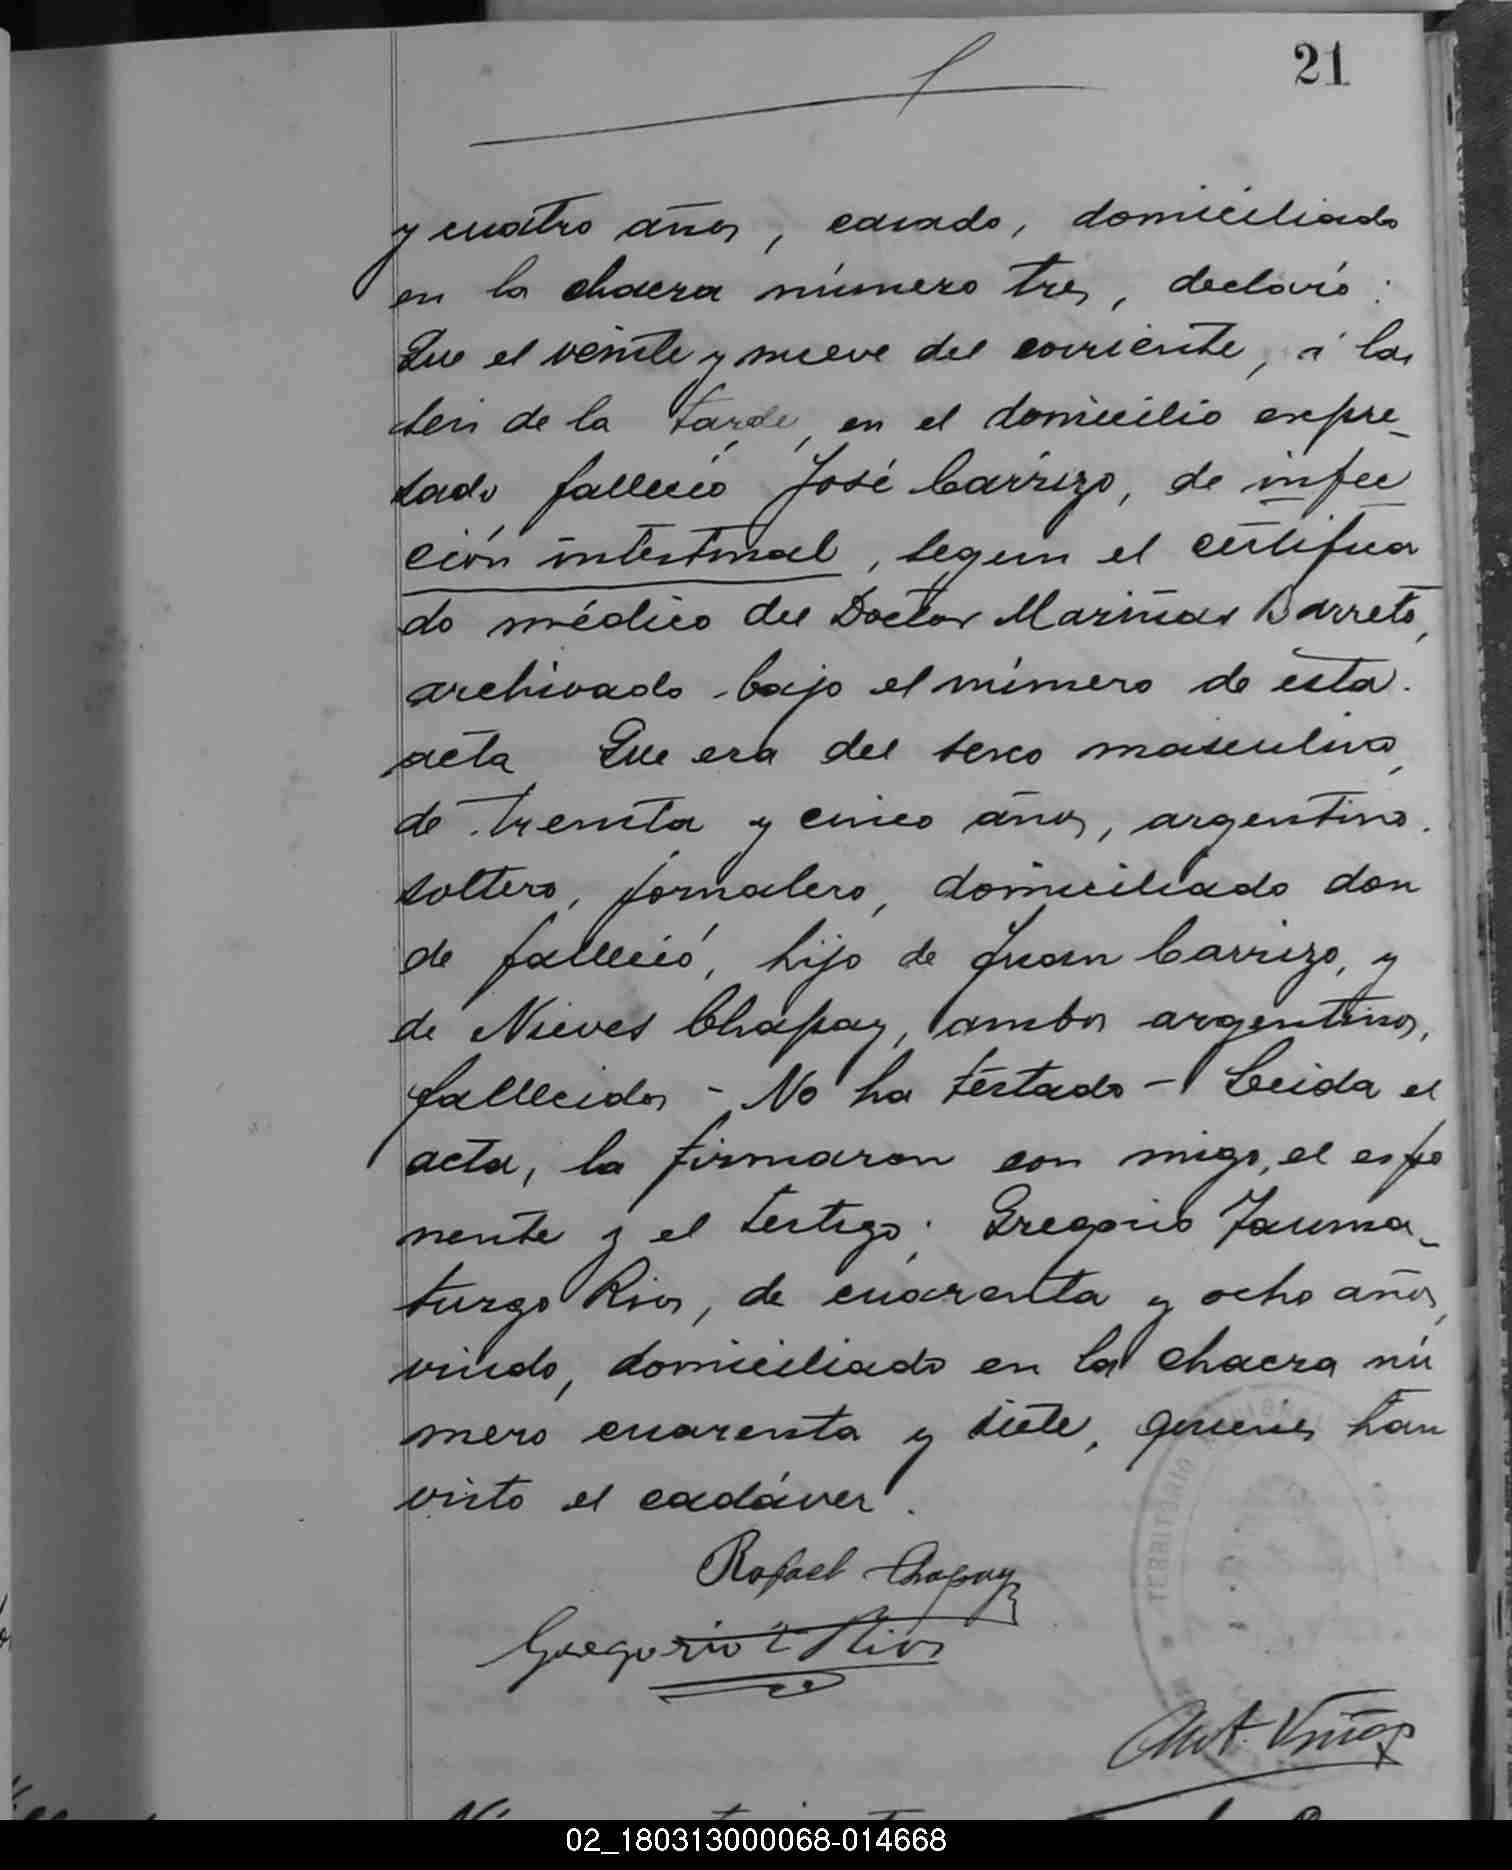 21
y cuatro años, casado, domiciliado
en la chacra número tres, declaró:
Que el veinte y nueve del corriente, á las
seis de la tarde, en el domicilio expre-
sado falleció José Carrizo, de infec
ción intestinal, segun el certifica
do médico del Doctor Mariñas Barreto,
archivado bajo el número de esta
acta Que era del sexo masculino,
de treinta y cinco años, argentino.
soltero, jornalero, domiciliado don
de falleció, hijo de Juan Carrizo, y
de Nieves Chapay, ambos argentinos,
fallecidos - No ha testado - Leida el
acta, la firmaron con migo, el espo
nente y el testigo; Gregorio Tauma-
turgo Rios, de cuarenta y ocho años,
viudo, domiciliado en la chacra nú
mero cuarenta y siete, quienes han
visto el cadáver.
Rafael Chapay
Gregorio T Rios
TERRITORIO
Ant. Viñas
02_180313000068-014668